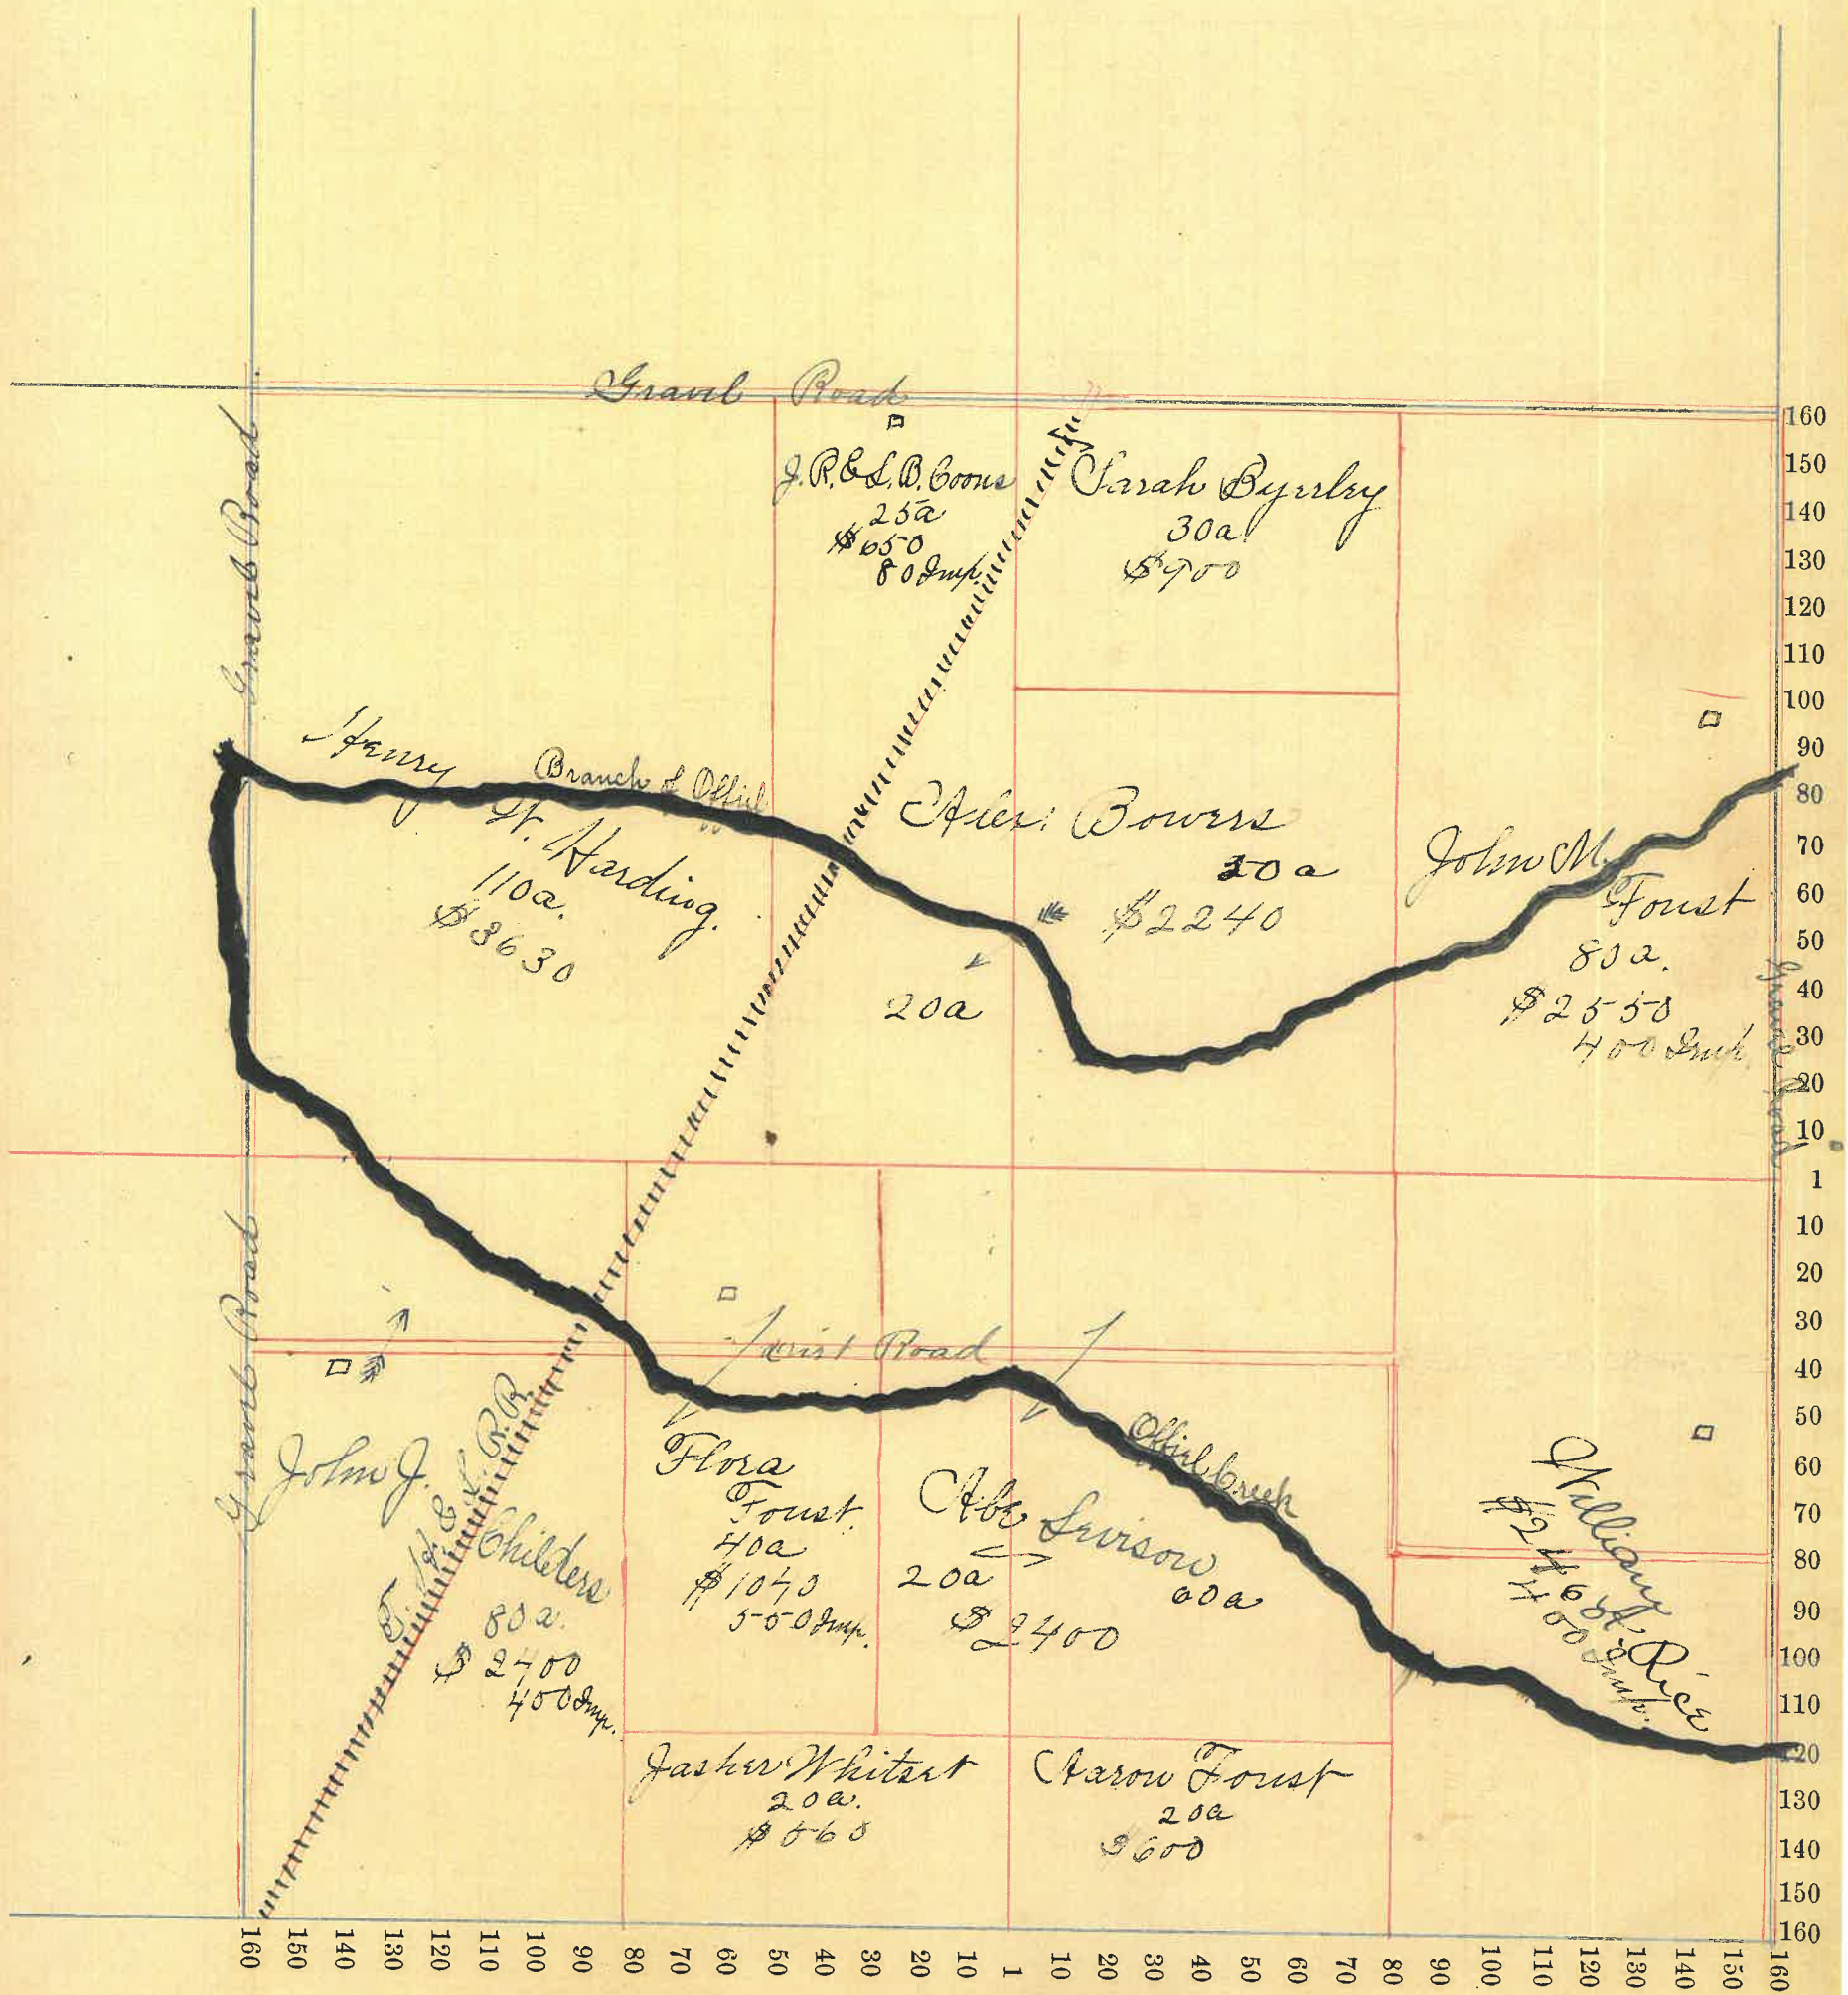 Gravel Road
Gravel Road
J. R. & L. B. Coons
25a
$650
80 Imp.
Sarah Byerley
30a
$900
Henry
W. Harding.
110a.
$3630
Branch of Offiel
Bowers
50a
$2240
20a
John M.
Foust
80a.
$2550
400 Imp.
Gravel Road
Gravel Road
Road
John J.
Childers
80a.
$2400
400 Imp.
R.R.
Flora
Foust.
40a
$1040
550 Imp.
Abe Levison
20a
60a
$2400
Offiel Creek
William Rice
400 Imp.
Jasher Whitset
20a.
$560
Aaron Foust
20a
$600
160
150
140
130
120
110
100
90
80
70
60
50
40
30
20
10
1
10
20
30
40
50
60
70
80
90
100
110
120
130
140
150
160
160 150 140 130 120 110 100 90 80 70 60 50 40 30 20 10 1 10 20 30 40 50 60 70 80 90 100 110 120 130 140 150 160